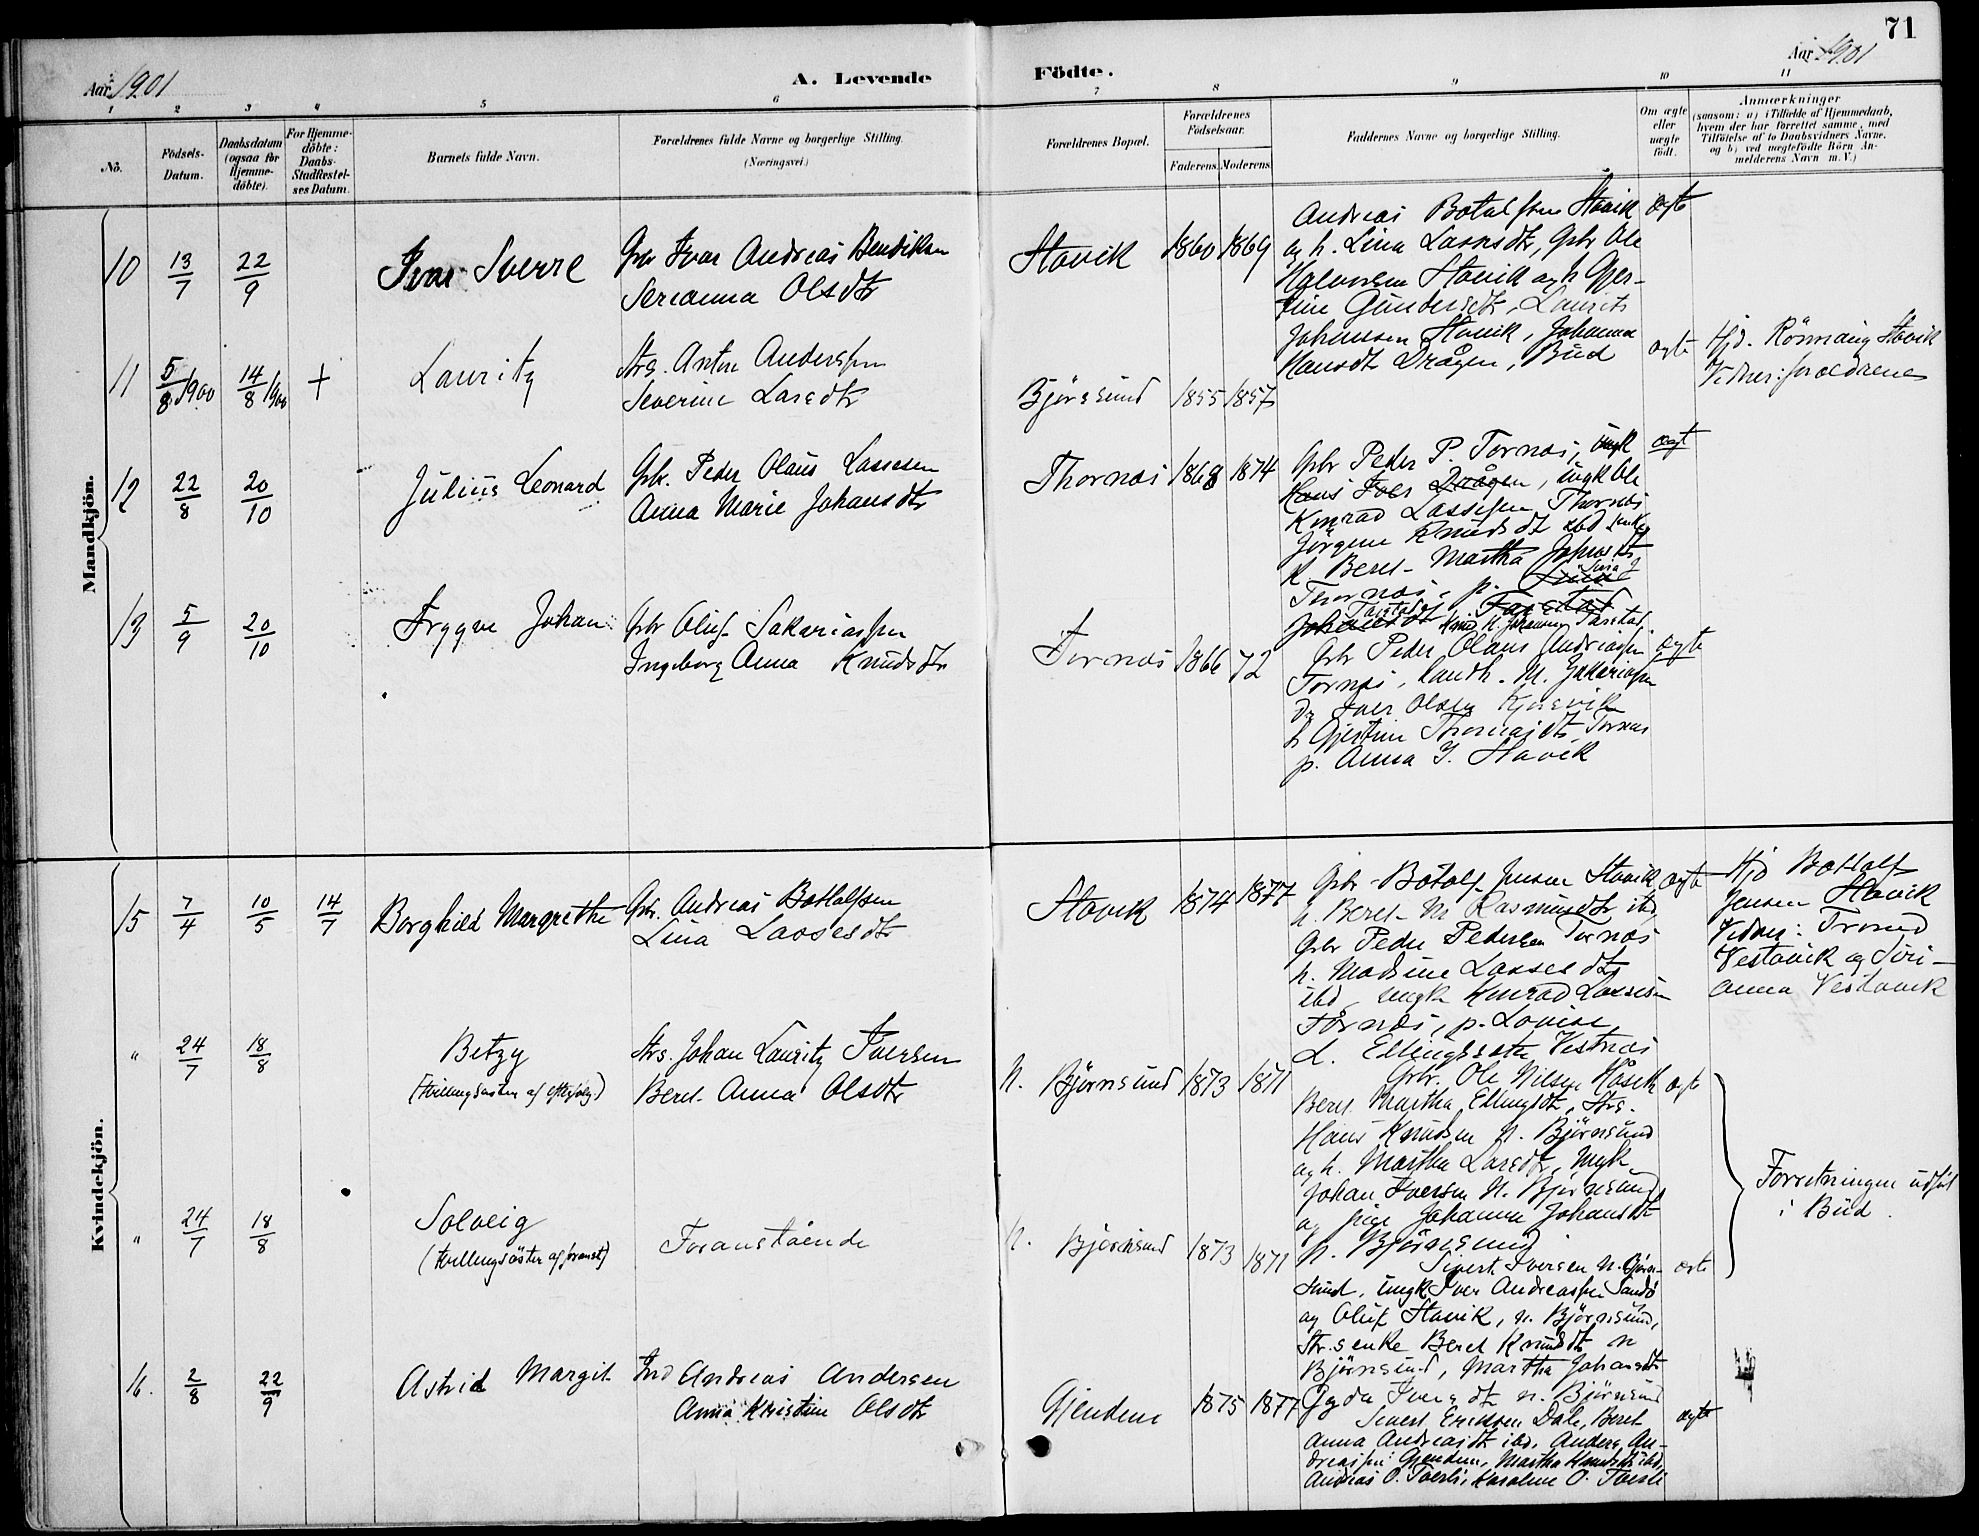 71
Aar 1901
A. Levende Födte.
Aar 1901
1 2 3 4 5 6 7 8 9 10 11
No.
Födsels-Datum.
Daabsdatum (ogsaa for Hjemmedöbte).
For Hjemmedöbte: Daabs-Stadfæstelses Datum.
Barnets fulde Navn.
Forældrenes fulde Navne og borgerlige Stilling. (Næringsvei.)
Forældrenes Bopæl.
Forældrenes Födselsaar.
Faderens. Moderens.
Faddernes Navne og borgerlige Stilling.
Om ægte eller uægte födt.
Anmærkninger
(saasom: a) i Tilfælde af Hjemmedaab, hvem der har forrettet samme, med Tilföielse af to Daabsvidners Navne, og b) ved uægtefödte Börn Anmelderens Navn m. V.)
Mandkjön.
10 13/7 22/9 Ivar Sverre
Gbr Ivar Andreas Bendiksen
Serianna Olsdtr
Stavik 1860 1869
Andreas Botolfsen Stavik
og h. Lina Lassesdtr, Gbr Ole
Halvorsen Stavik og h Gjer-
tine Gundersdtr, Laurits
Johansen Stavik, Johanna
Hansdt Drågen, Bud
ægte
11 5/8 1900 14/8 1900 + Lauritz
Strs. Anton Anderssen
Severine Larsdtr
Björnsund 1855 1857
ægte
Hjd. Rönnaug Stavik
Vidner: forældrene
12 22/8 20/10 Julius Leonard
Gbr. Peder Olaus Lassesen
Anna Marie Johansdtr
Thornæs 1868 1874
Gbr Peder P. Tornæs, ungk
Hans Iver Drågen, ungk Ole
Konrad Lassesen Thornæs
Jörgine Knudsdt ibd enke
K Beret-Martha Johnsdt
Thornæs, p.
Johansdt
ægt
13 5/9 20/10 Trygve Johan
Gbr Oluf Sakariassen
Ingeborg Anna Knudsdtr
Tornæs 1866 72
Gbr Peder Olaus Andreassen
Tornæs, Landh. M. Zakariassen
Do Iver Olsen
h Gjertine Thomasdt Tornæs
p. Anna I. Stavik
ægte
Kvindekjön.
15 7/4 10/5 14/7 Borghild Margrethe
Gbr. Andreas Botolfsen
Lina Lassesdtr
Stavik 1874 1877
Gbr Botolf Jensen Stavik
h. Beret M Rasmusdtr ibd,
Gbr Peder Pedersen Tornæs
h. Madsine Lassesdtr
ibd, ungk Konrad Lassesen
Tornæs, p. Lovise
L. Ellingsæter Vestnæs
ægte
Hjd Bottolf
Jensen Stavik
Vidner: Trond
Vestavik og Siri-
Anna Vestavik
" 24/7 18/8 Betzy
(tvillingsöster af efterfølg.)
Strs. Johan Lauritz Iversen
Beret Anna Olsdtr
N. Björnsund 1873 1871
Gbr. Ole Nilsen Håsvik
Beret Martha Ellingsdtr, Strs.
Hans Knudsen N. Björnsund
og h. Martha Larsdtr, ungk
Johan Iversen N. Björnsund
og pige Johanna Johansdt
N. Björnsund
ægt
Forretningen udfört
i Bud.
" 24/7 18/8 Solveig
(tvillingsöster af foranst.)
Foranstående
N. Björnsund 1873 1871
Sivert Iversen N. Björn-
sund, ungk Iver Andreassen Sandö
og Oluf Stavik, N. Björnsund,
Strs enke Beret Knudsdt N
Björnsund, Martha Johansdtr
Gyda Iversdt N. Björnsund
ægte
16. 2/8 22/9 Astrid Margit
Ind Andreas Andersen
Anna Kristine Olsdtr
Gjendem 1875 1877
Sivert Eriksen Dale, Beret
Anna Andreasdt ibd, Anders An-
dreassen Gjendem, Martha Knudsdt ibd,
Andreas O. Tverli, Karoline O. Tverli
ægte